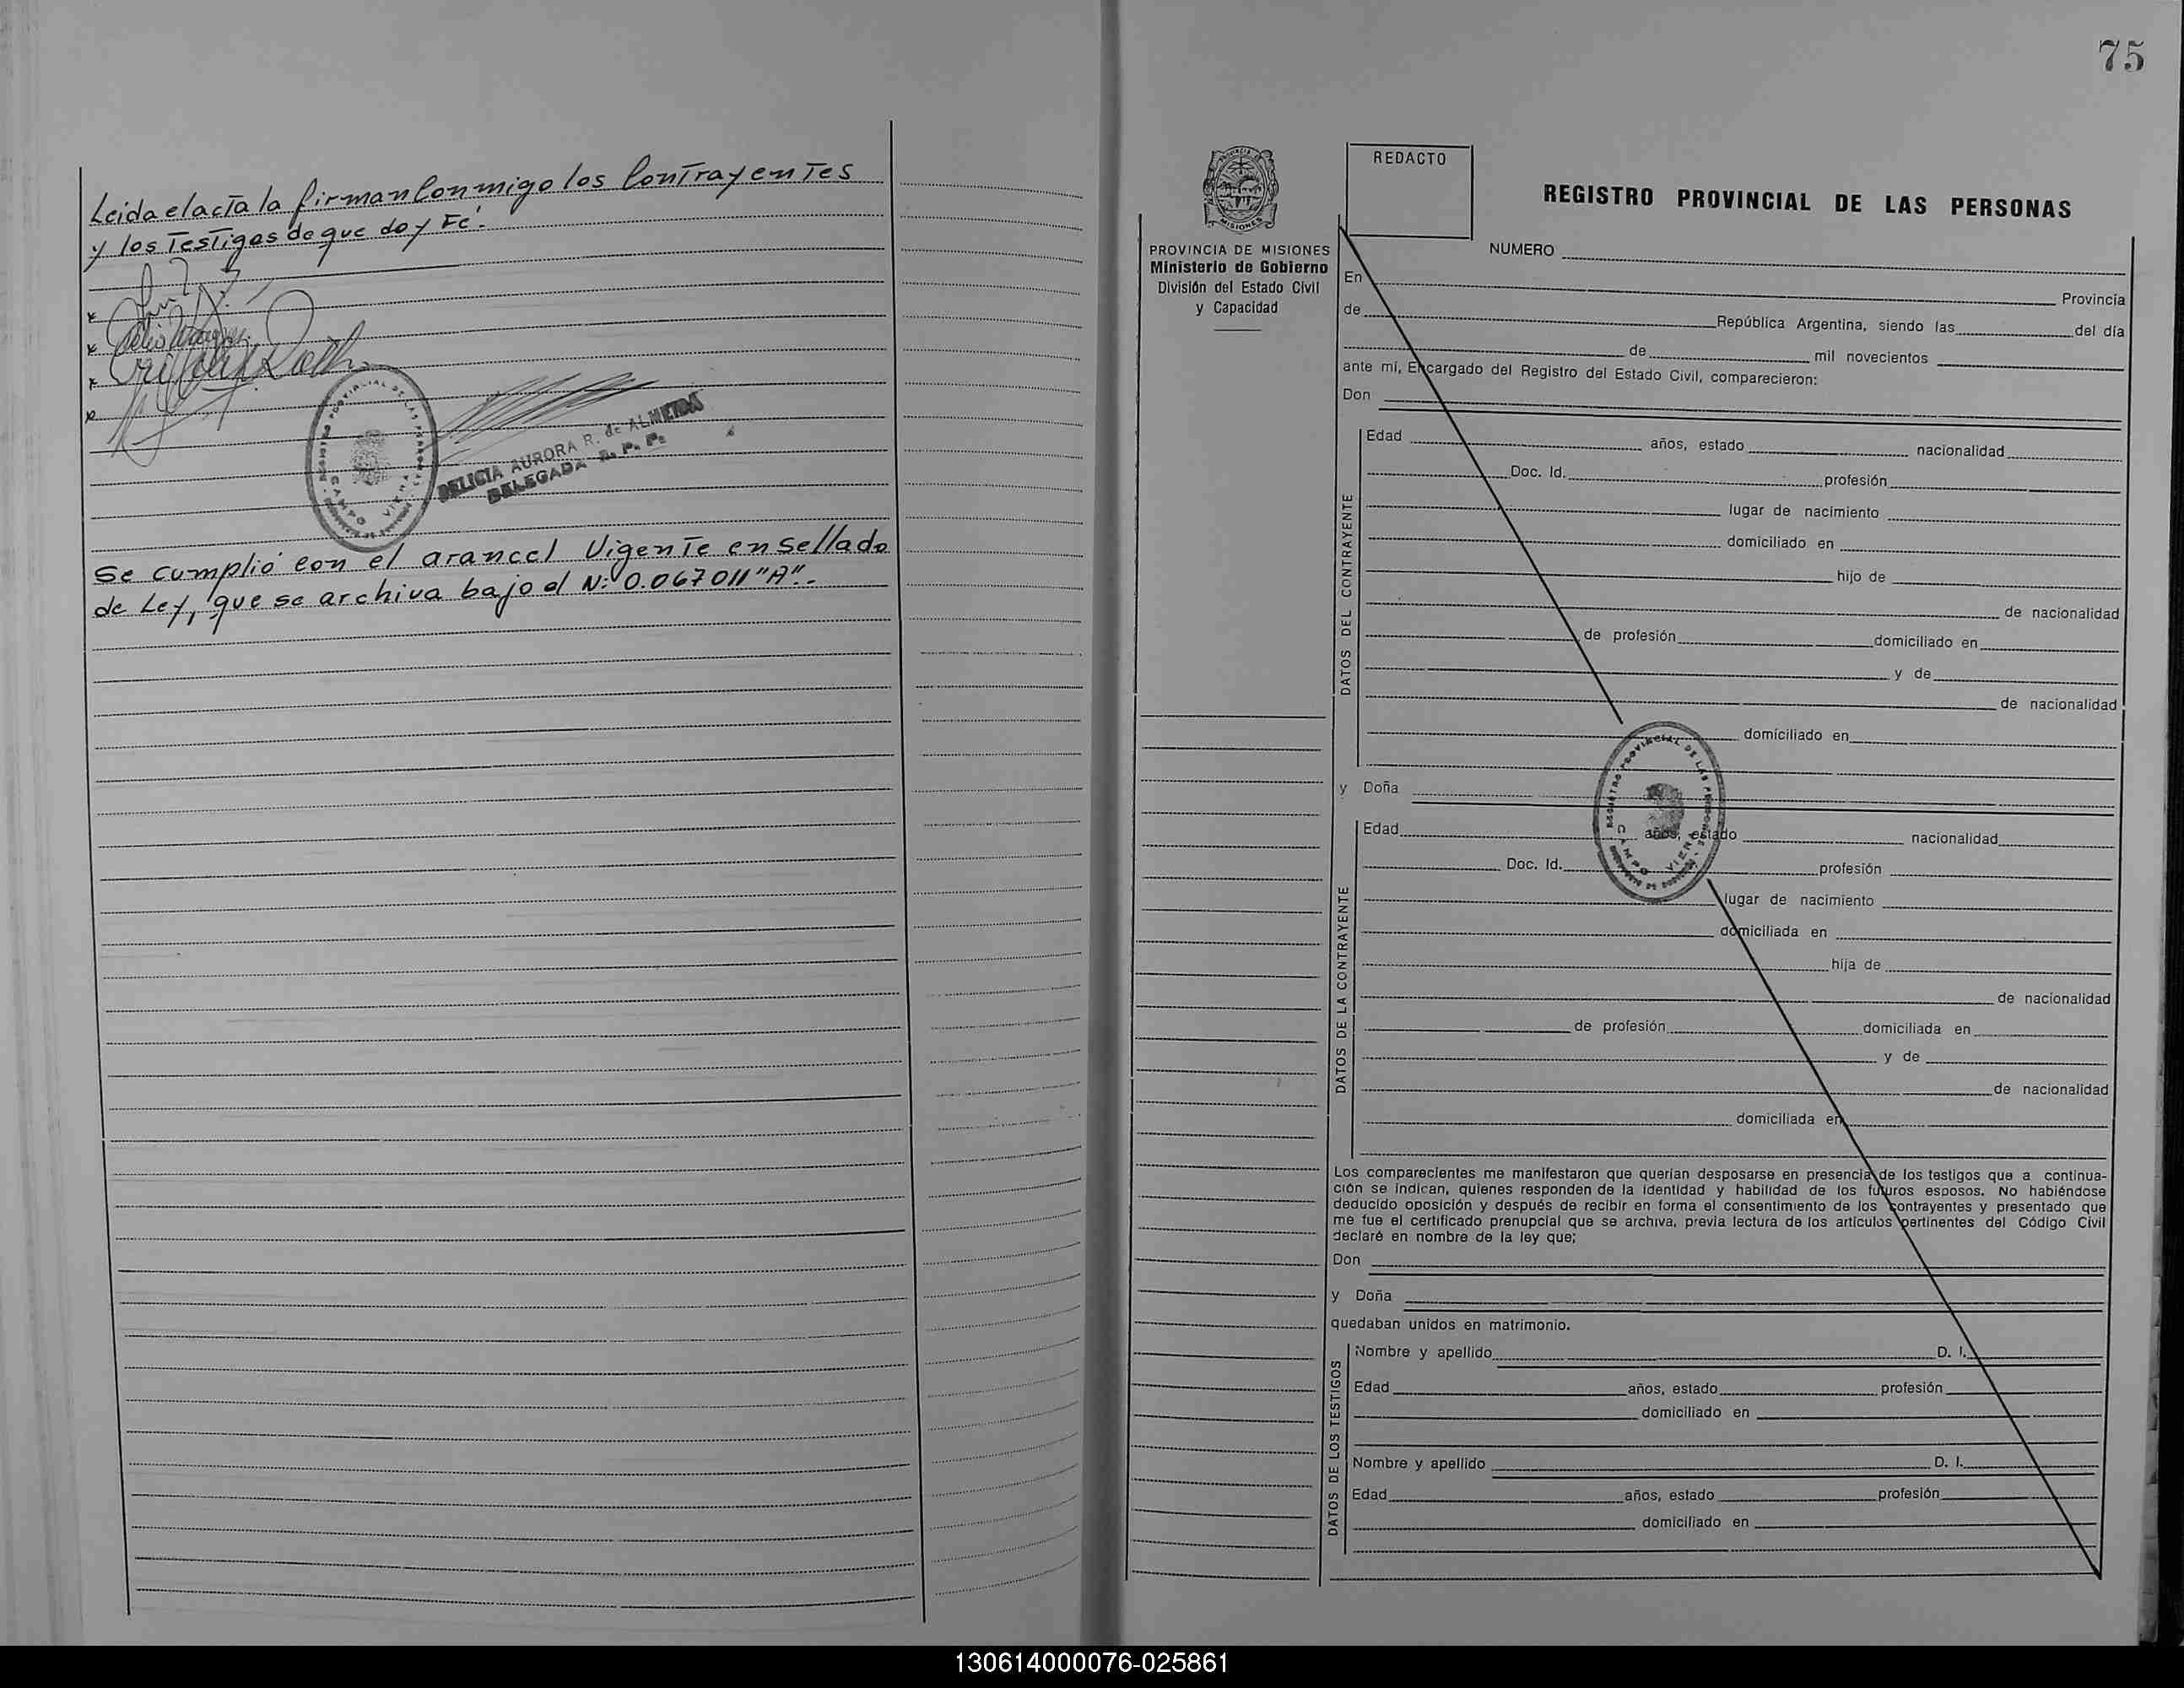 Leida el acta la firman Conmigo los Contrayentes
y los Testigos de que doy Fé.
DELICIA AURORA R. de ALMEIDA
DELEGADA R. P. P.
Se cumplió con el arancel Vigente en sellado
de Ley, que se archiva bajo el Nº 0.067011 "A".-
75
PROVINCIA DE MISIONES
Ministerio de Gobierno
División del Estado Civil
y Capacidad
REDACTO
REGISTRO PROVINCIAL DE LAS PERSONAS
NUMERO
En Provincia
de República Argentina, siendo las del día
de mil novecientos
ante mí, Encargado del Registro del Estado Civil, comparecieron:
Don
DATOS DEL CONTRAYENTE
Edad años, estado nacionalidad
Doc. Id. profesión
lugar de nacimiento
domiciliado en
hijo de
de nacionalidad
de profesión domiciliado en
y de
de nacionalidad
domiciliado en
REGISTRO PROVINCIAL DE LAS PERSONAS
CAMPO VIERA
y Doña
DATOS DE LA CONTRAYENTE
Edad años, estado nacionalidad
Doc. Id. profesión
lugar de nacimiento
domiciliada en
hija de
de nacionalidad
de profesión domiciliada en
y de
de nacionalidad
domiciliada en
Los comparecientes me manifestaron que querían desposarse en presencia de los testigos que a continua-
ción se indican, quienes responden de la identidad y habilidad de los futuros esposos. No habiéndose
deducido oposición y después de recibir en forma el consentimiento de los contrayentes y presentado que
me fue el certificado prenupcial que se archiva, previa lectura de los artículos pertinentes del Código Civil
declaré en nombre de la ley que;
Don
y Doña
quedaban unidos en matrimonio.
DATOS DE LOS TESTIGOS
Nombre y apellido D. I.
Edad años, estado profesión
domiciliado en
Nombre y apellido D. I.
Edad años, estado profesión
domiciliado en
130614000076-025861